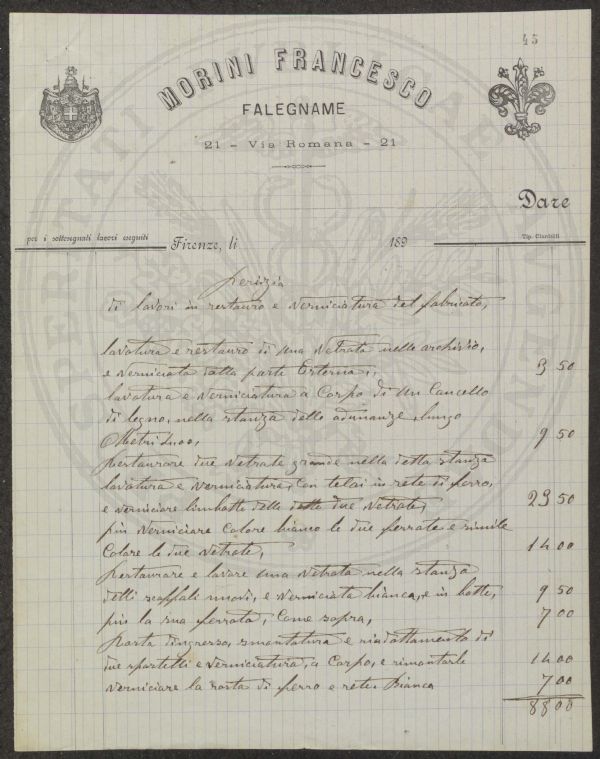 45
MORINI FRANCESCO
FALEGNAME
21 - Via Romana - 21
Dare
per i sottosegnati lavori eseguiti
Firenze, li 189
Tip. Ciardelli
Perizia
di lavori in restauro e verniciatura del fabricato,
lavatura e restauro di una vetrata nelle archivio, 3 50
e verniciata dalla parte Esterna,
lavatura e verniciatura a Corpo di un Cancello
di legno, nella stanza delle adunanze, lungo
Metri 2.00, 9 50
Restaurare due vetrate grande nella detta stanza
lavatura e verniciatura, con telai in rete di ferro,
e verniciare linbotte delle dette due vetrate, 23 50
più verniciare Colore bianco le due ferrate e simile
Colore le due vetrate, 14 00
Restaurare e lavare una vetrata nella stanza
delli scaffali nuovi, e verniciata bianca, e in botte, 9 50
più la sua ferrata, Come sopra, 7 00
Porta dingresso, smontatura e riadattamento di
due sportelli e verniciatura, a Corpo, e rimontarle 14 00
verniciare la rosta di ferro e rete Bianca 7 00
88 00